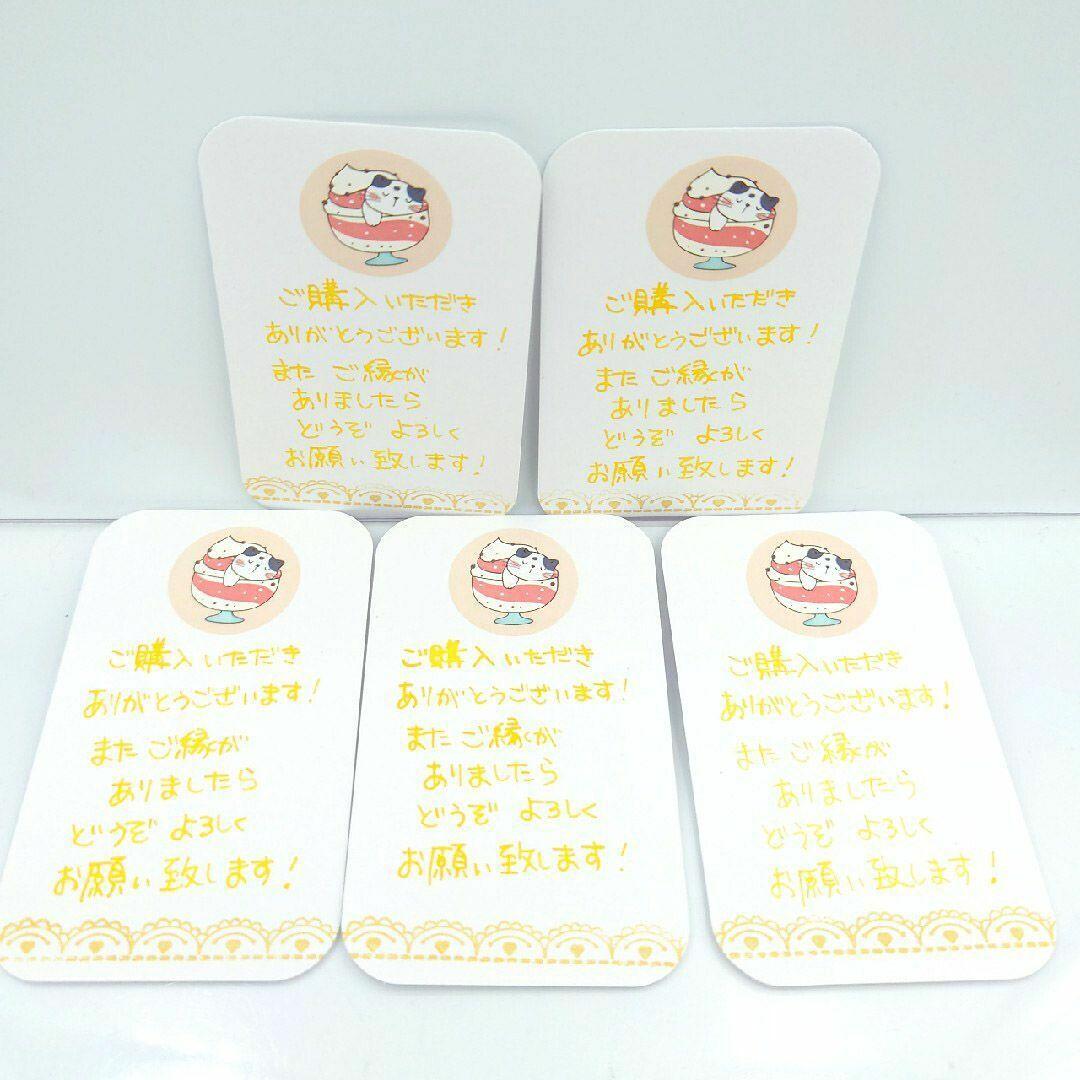 ご購入いただき
ありがとうございます!
また ご縁が
ありましたら
どうぞ よろしく
お願い致します!
ご購入いただき
ありがとうございます!
また ご縁が
ありましたら
どうぞ よろしく
お願い致します!
ご購入いただき
ありがとうございます!
また ご縁が
ありましたら
どうぞ よろしく
お願い致します!
ご購入いただき
ありがとうございます!
また ご縁が
ありましたら
どうぞ よろしく
お願い致します!
ご購入いただき
ありがとうございます!
また ご縁が
ありましたら
どうぞ よろしく
お願い致します!